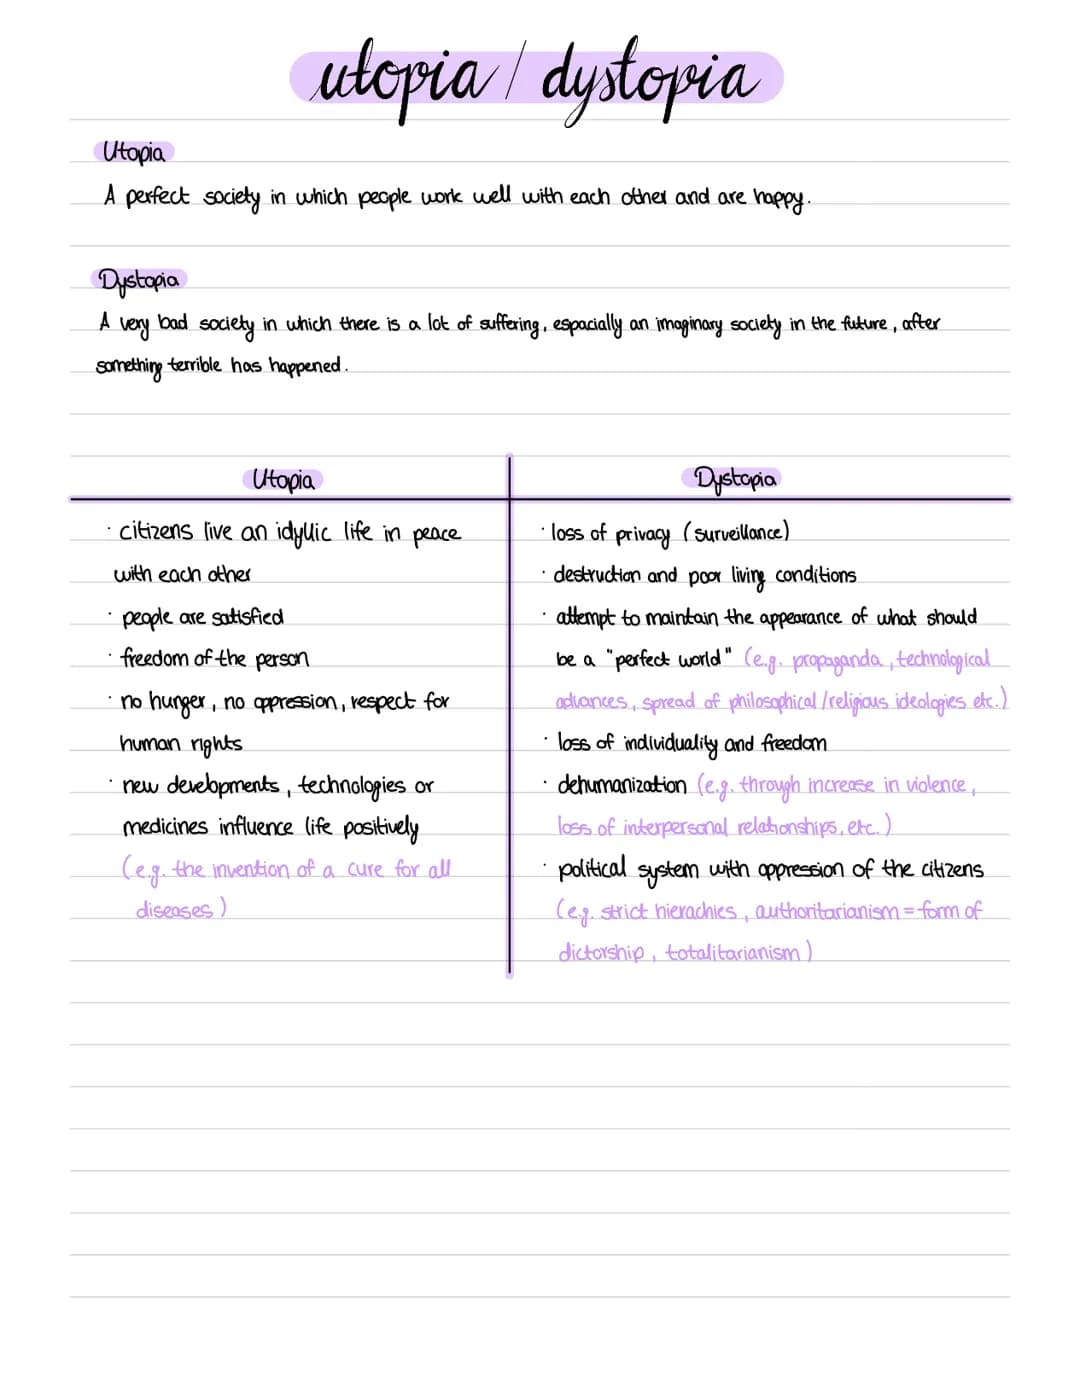 utopia / dystopia
Utopia
A perfect society in which people work well with each other and are happy.
Dystopia
A very bad society in which there is a lot of suffering, espacially an imaginary society in the future, after
something terrible has happened.
Utopia
· citizens live an idyllic life in peace
with each other
· people are satisfied
· freedom of the person
· no hunger, no oppression, respect for
human rights
· new developments, technologies or
medicines influence life positively
(e.g. the invention of a cure for all
diseases)
Dystopia
· loss of privacy (surveillance)
· destruction and poor living conditions
· attempt to maintain the appearance of what should
be a "perfect world" (e.g. propaganda, technological
advances, spread of philosophical / religious ideologies etc.)
· loss of individuality and freedom
· dehumanization (e.g. through increase in violence,
loss of interpersonal relationships, etc.)
· political system with oppression of the citizens
(e.g. strict hierachies, authoritarianism = form of
dictorship, totalitarianism)